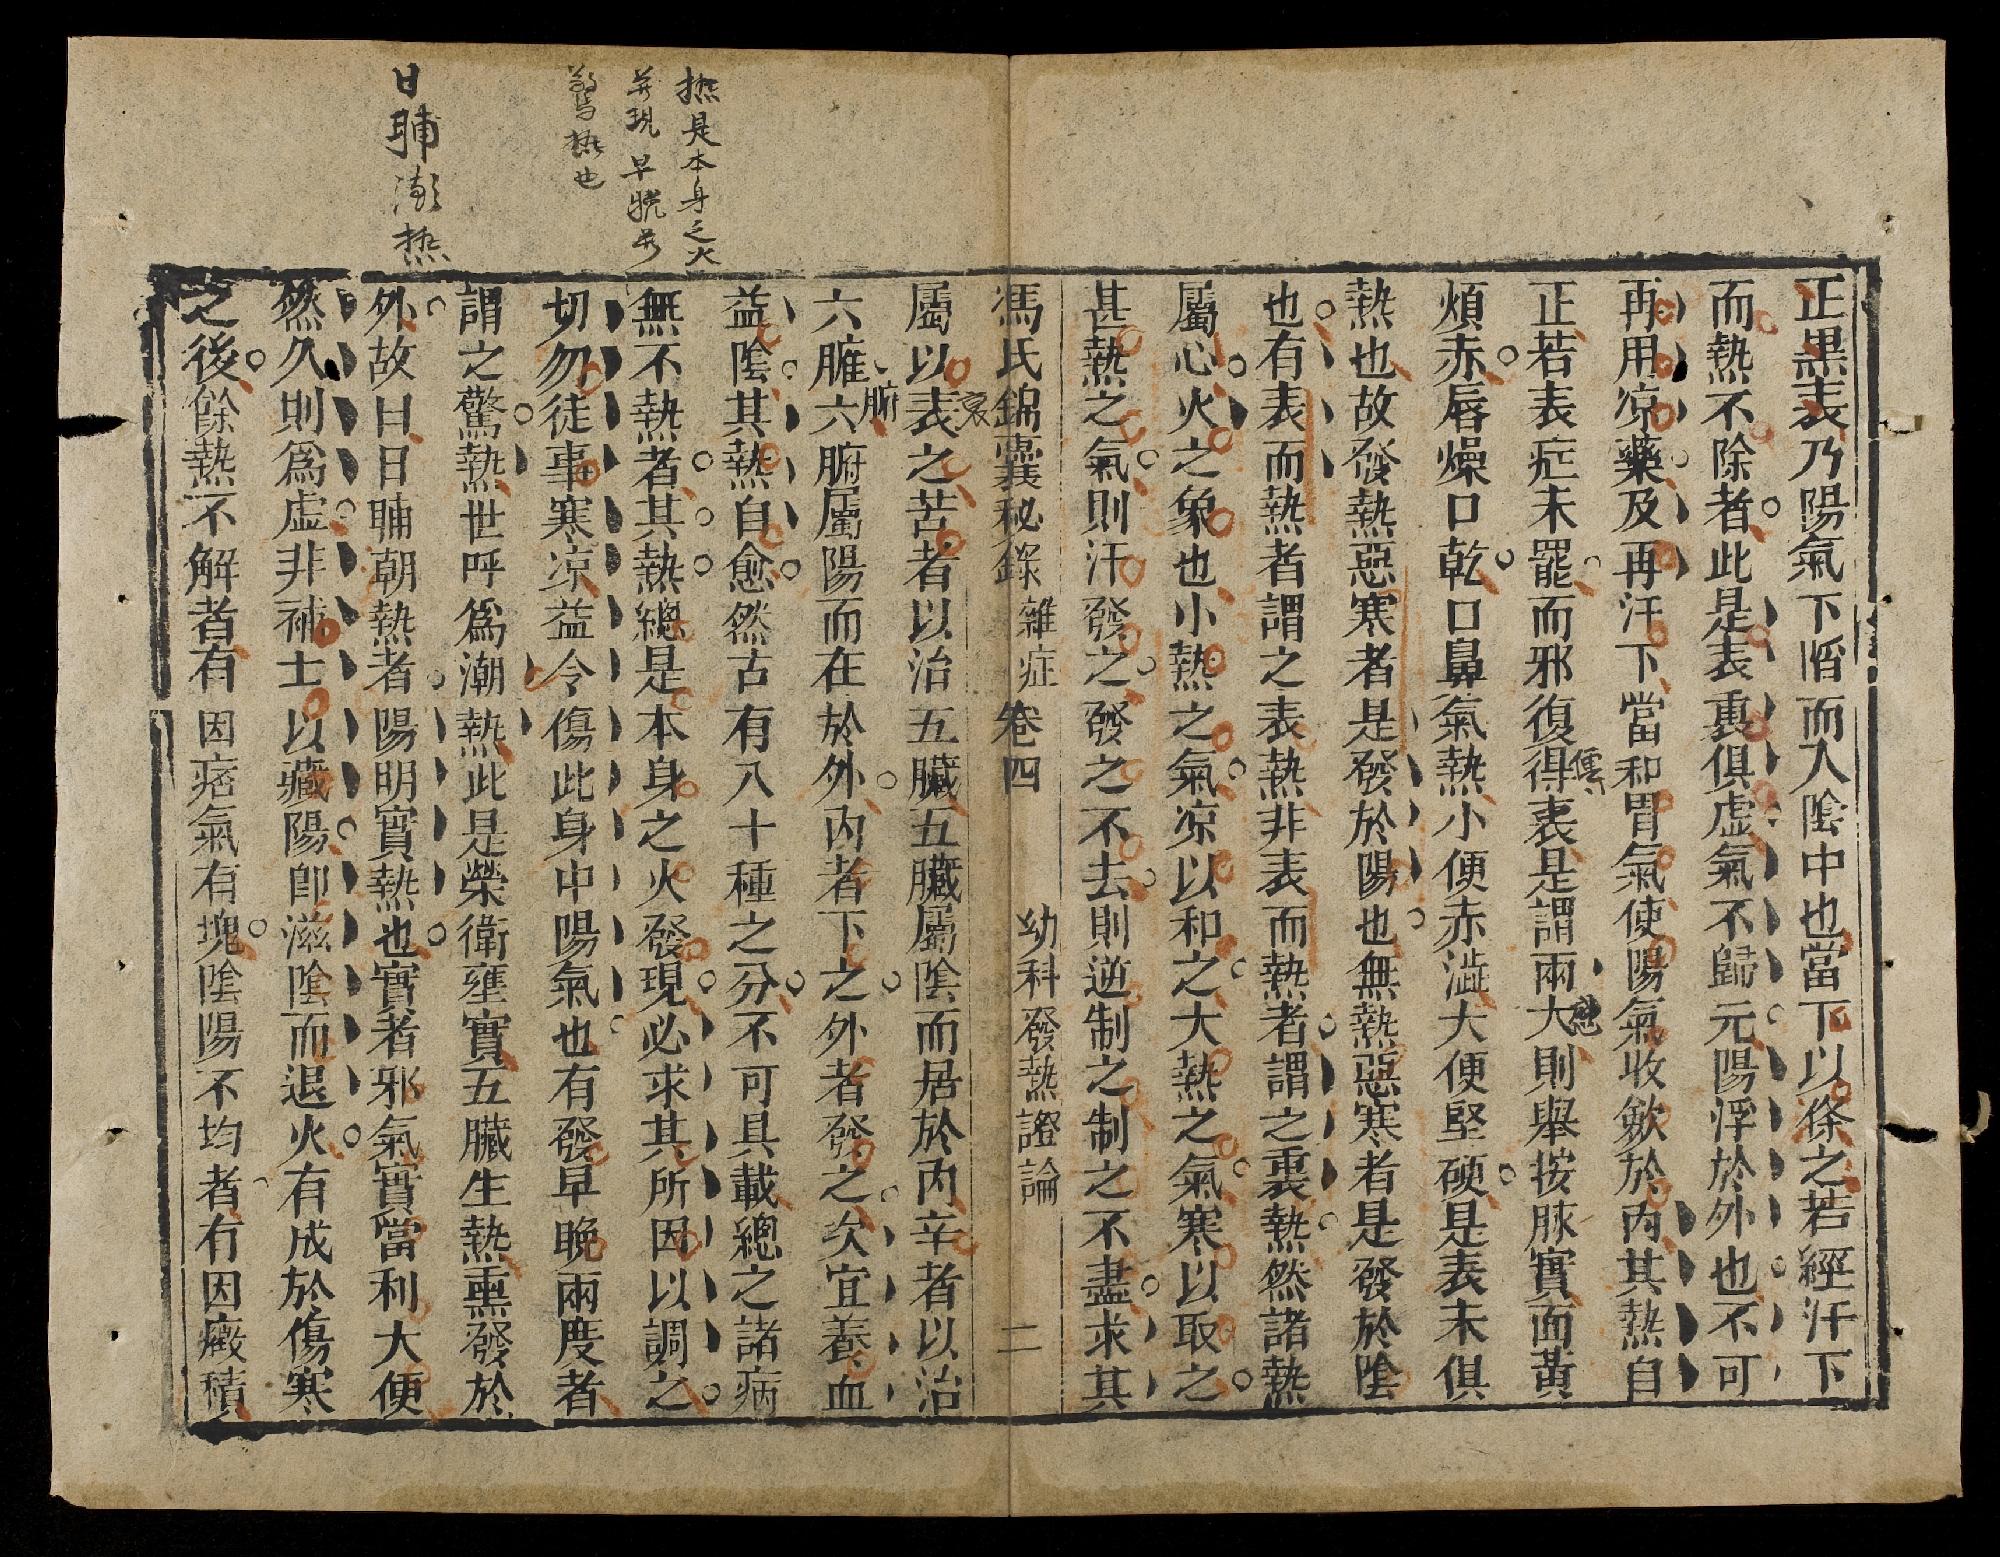 正黑表乃陽氣下䧟而入陰中也當下以條之若經汗下
而熱不除者此是表裏俱虛氣不歸元陽浮於外也不可
再用凉藥及再汗下當和胃氣使陽氣收歛於內其熱自
正若表症未罷而邪復得裏是謂兩大則舉按脉實面黃
煩赤唇燥口乾口鼻氣熱小便赤澁大便堅硬是表未俱
熱也故發熱惡寒者是發於陽也無熱惡寒者是發於陰
也有表而熱者謂之表熱非表而熱者謂之裏熱然諸熱
屬心火之象也小熱之氣凉以和之大熱之氣寒以取之
甚熱之氣則汗發之發之不去則逆制之制之不盡求其
馮氏錦囊秘錄 雜症 卷四 幼科發熱證論 二
屬以表之苦者以治五臟五臟屬陰而居於內辛者以治
六臟六腑屬陽而在於外內者下之外者發之次宜養血
益陰其熱自愈然古有八十種之分不可具載總之諸病
無不熱者其熱總是本身之火發現必求其所因以調之
切勿徒事寒凉益令傷此身中陽氣也有發早晚兩度者
謂之驚熱世呼為潮熱此是榮衛壅實五臟生熱熏發於
外故日日晡朝熱者陽明實熱也實者邪氣實當利大便
然久則爲虛非補土以藏陽卽滋陰而退火有成於傷寒
之後餘熱不解者有因痞氣有塊陰陽不均者有因癥積
裏
腑
㧣是本身之火
發現早晚發
驚㧣也
日晡潮㧣